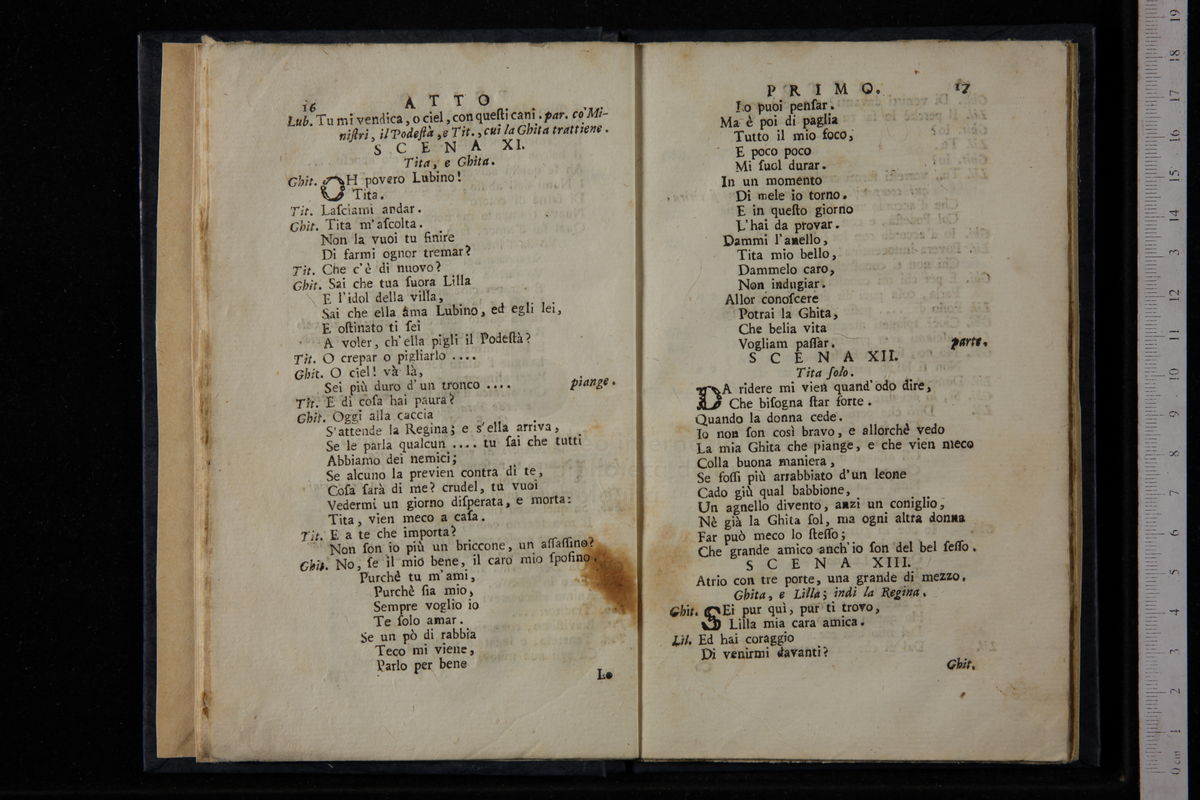 16 ATTO
Lub. Tu mi vendica, o ciel, con queſti cani. par. co' Mi-
niſtri, il Podeſtà, e Tit., cui la Ghita trattiene.
SCENA XI.
Tita, e Ghita.
Ghit. OH povero Lubino!
Tita.
Tit. Laſciami andar.
Ghit. Tita m'aſcolta.
Non la vuoi tu finire
Di farmi ognor tremar?
Tit. Che c'è di nuovo?
Ghit. Sai che tua ſuora Lilla
E l'idol della villa,
Sai che ella ama Lubino, ed egli lei,
E oſtinato ti ſei
A voler, ch'ella pigli il Podeſtà?
Tit. O crepar o pigliarlo ....
Ghit. O ciel! và là,
Sei più duro d'un tronco .... piange.
Tit. E di coſa hai paura?
Ghit. Oggi alla caccia
S'attende la Regina; e s'ella arriva,
Se le parla qualcun .... tu ſai che tutti
Abbiamo dei nemici;
Se alcuno la previen contra di te,
Coſa ſarà di me? crudel, tu vuoi
Vedermi un giorno diſperata, e morta:
Tita, vien meco a caſa.
Tit. E a te che importa?
Non ſon io più un briccone, un aſſaſſino?
Ghit. No, ſe il mio bene, il caro mio ſpoſino.
Purchè tu m'ami,
Purchè ſia mio,
Sempre voglio io
Te ſolo amar.
Se un pò di rabbia
Teco mi viene,
Parlo per bene
Lo
PRIMO. 17
Lo puoi penſar.
Ma è poi di paglia
Tutto il mio foco,
E poco poco
Mi ſuol durar.
In un momento
Di mele io torno.
E in queſto giorno
L'hai da provar.
Dammi l'anello,
Tita mio bello,
Dammelo caro,
Non indugiar.
Allor conoſcere
Potrai la Ghita,
Che bella vita
Vogliam paſſar. parte.
SCENA XII.
Tita ſolo.
DA ridere mi vien quand'odo dire,
Che biſogna ſtar forte.
Quando la donna cede.
Io non ſon così bravo, e allorchè vedo
La mia Ghita che piange, e che vien meco
Colla buona maniera,
Se foſſi più arrabbiato d'un leone
Cado giù qual babbione,
Un agnello divento, anzi un coniglio,
Nè già la Ghita ſol, ma ogni altra donna
Far può meco lo ſteſſo;
Che grande amico anch'io ſon del bel ſeſſo.
SCENA XIII.
Atrio con tre porte, una grande di mezzo.
Ghita, e Lilla; indi la Regina.
Ghit. SEi pur quì, pur ti trovo,
Lilla mia cara amica.
Lil. Ed hai coraggio
Di venirmi davanti?
Ghit.